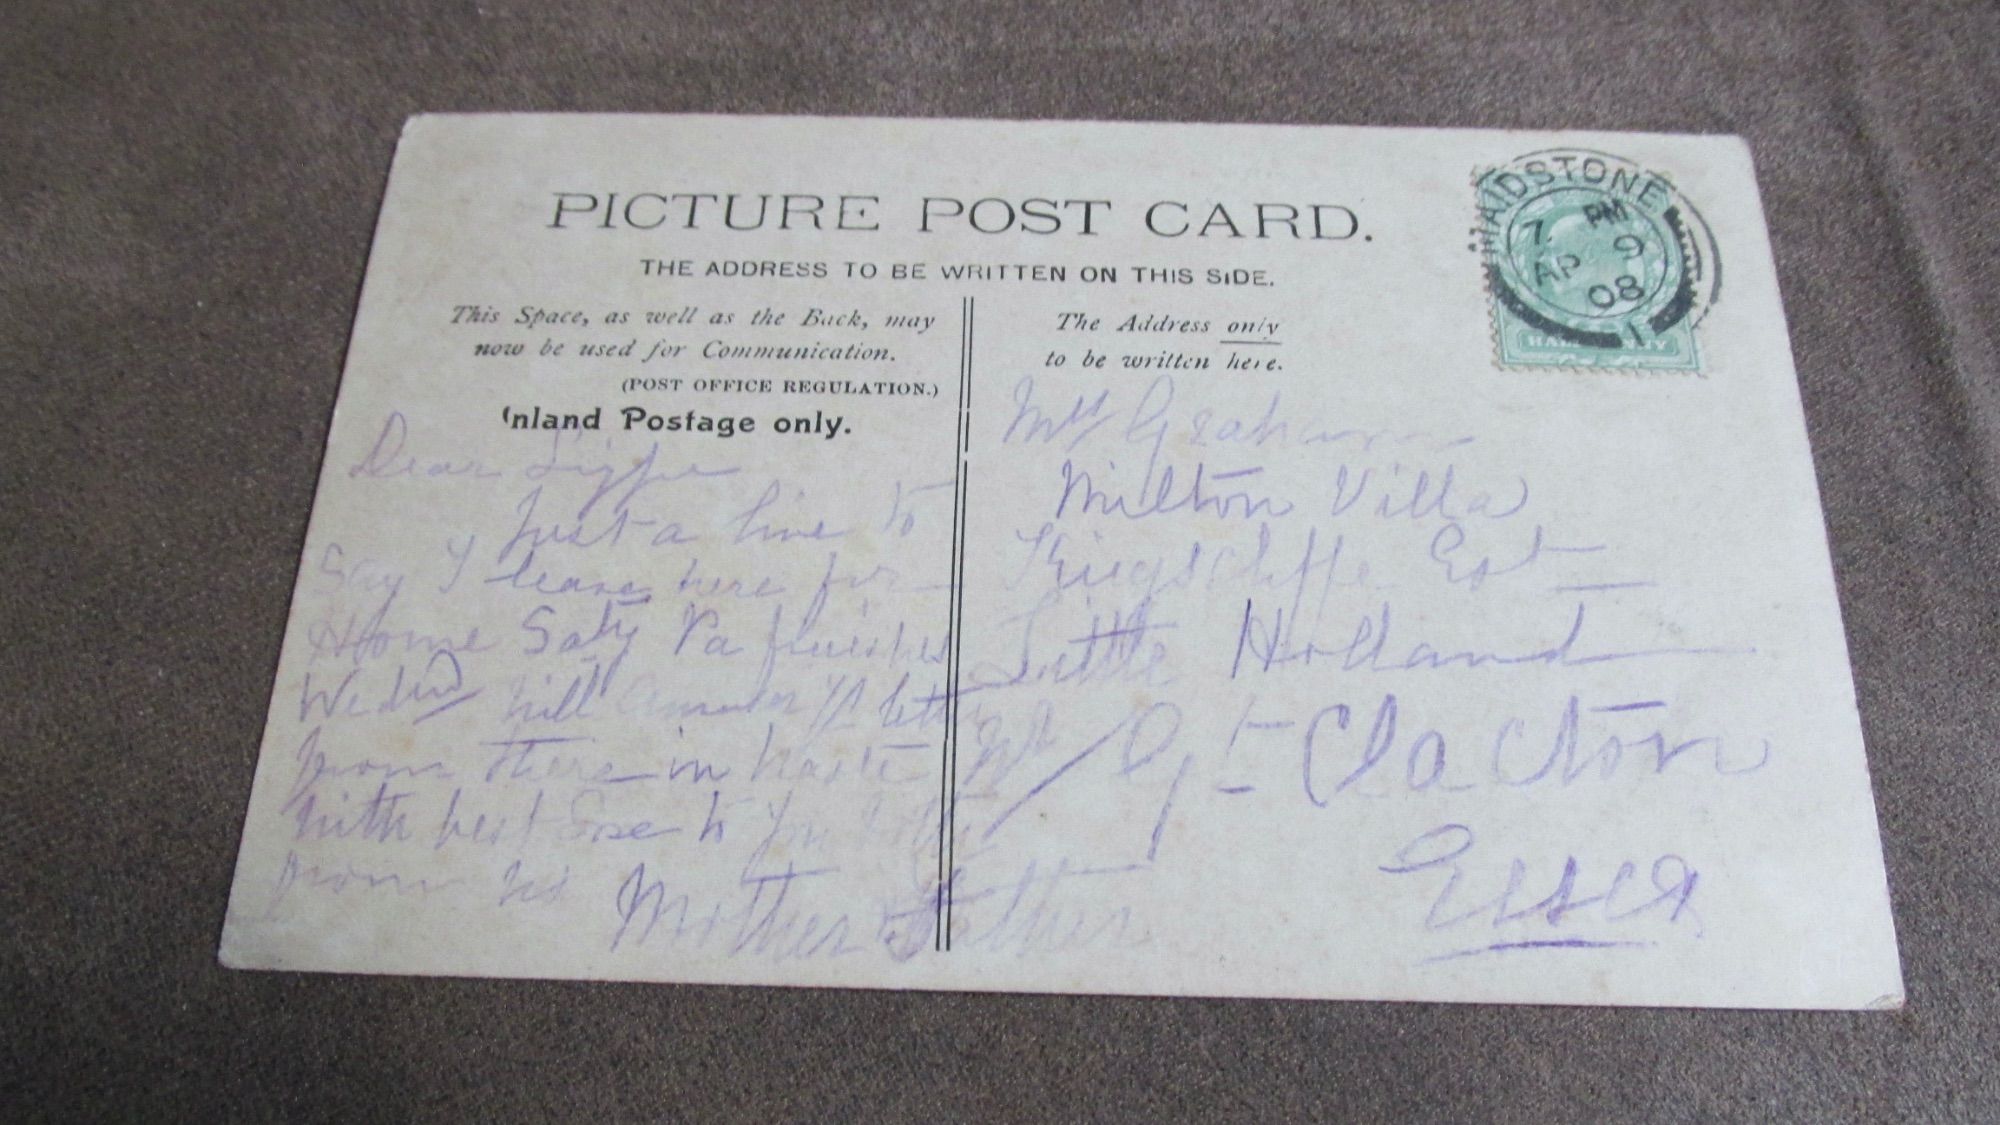 PICTURE POST CARD.
THE ADDRESS TO BE WRITTEN ON THIS SIDE.
This Space, as well as the Back, may
now be used for Communication.
(POST OFFICE REGULATION.)
Inland Postage only.
Dear
Just a line to
Say I leave here for
Home Saty Pa finishes
Wedn will yr letter
from there in haste
with best love to you
from his Mother & Father
The Address only
to be written here.
Mrs Graham
Milton Villa
Kingscliffe Est
Little Holland
Nr Gt Clacton
Essex
MAIDSTONE
7. PM
AP 9
08
1
HALFPENNY